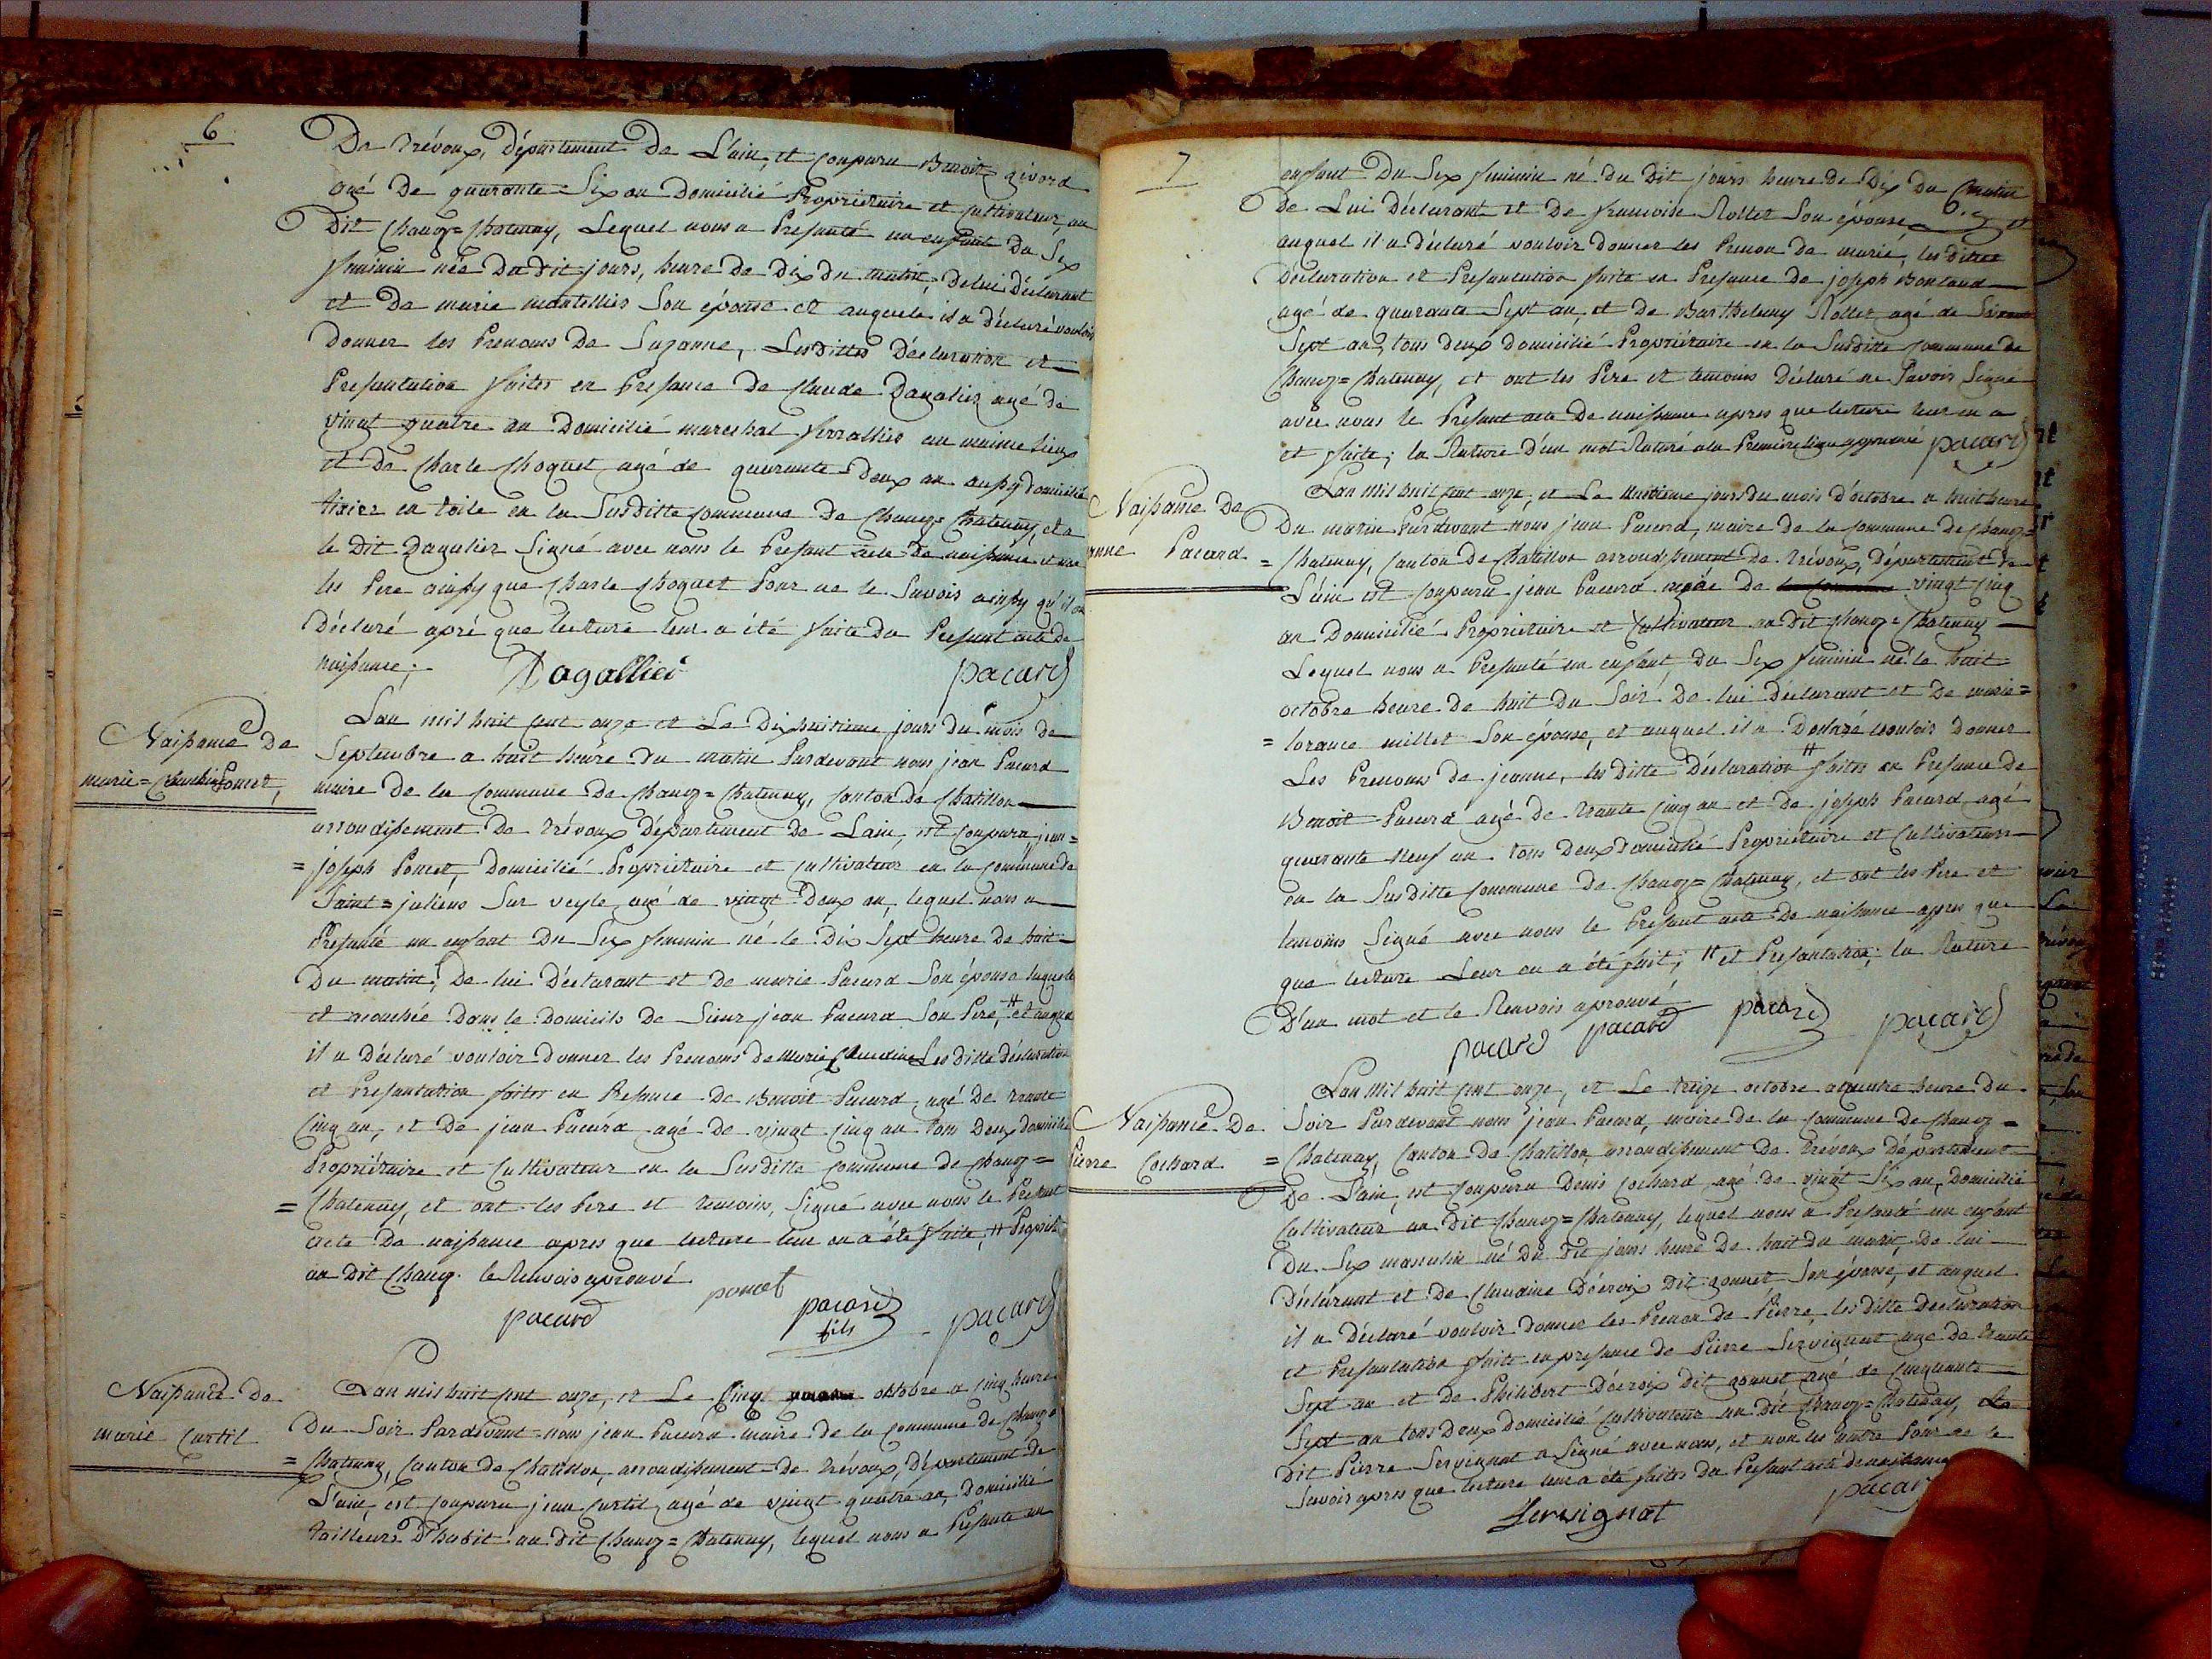 6
De Trévoux, département De L'ain, et Conparu Benoit givord
agé De quarante-Six an Domicilié Propriétaire et Cultivateur, au
Dit Chanoz=Chatenay, Lequel nous a Presanté un enfant Du Sex
feminin née Du dit jours, heure de Dix Du matin, de lui Déclarant
et De marie montellier Son épouse et auquele il a Déclaré vouloir
Donner les Prenoms De Suzanne, Lesdittes Déclaration et
Presantation faites en Presance de Claude Dagalier agé de
vingt quatre an Domicilié mareschal ferrallier au maime lieux
et De Charle Choquet agé de quarante-Deux an aussy domicilié
tixier en toile en la Susditte Commune De Chanoz Chatenay, et a
le dit Dagalier Signé avec nous le Presant acte de naissance et non
les Pere ainsy que Charle Choquet Pour ne le Savoir ainsy qu'il on
Déclaré apré que lecture leur a été faite du Presant acte de
naissance;
Dagallier pacard
Naissance De
marie=Claudine Poncet,
L'an mil huit cent onze et Le Dix huitieme jours du mois de
Septembre a huit heure du matin Pardevant nous jean Pacard
maire De la Commune De Chanoz=Chatenay, Canton de Chatillon
arrondissement De Trévoux Département De Lain, est Conparu jean=
=joseph Poncet, Domicilié Propriétaire et Cultivateur en la Commune de
Saint=juliens Sur veyle, agé de vingt Deux an, lequel nous a
Presanté un enfant Du Sex feminin né le Dix Sept heure De huit
Du matin, De lui Déclarant et de marie Pacard Son épouse laquele
et acouchée Dans le Domicile De Sieur jean Pacard Son Pere, # et auquel
il a Déclaré vouloir donner les Prenoms de marie Claudine Les ditte déclaration
et Presantation faites en Presance De Benoit Pacard agé De trante
Cinq an, et De jean Pacard agé De vingt Cinq an tous Deux domicilié
Propriétaire et Cultivateur en la Susditte Commune De Chanoz=
=Chatenay, et ont les Pere et temoins, Signé avec nous le Presant
acte De naissance apres que lecture leur en a été faite, #
au Dit Chanoz. le Renvois aprouvé
poncet
pacard pacard fils pacard
Naissance De
marie Curtil
L'an mil huit cent onze, et Le Cinq octobre a Cinq heure
Du Soir Pardevant=nous jean Pacard maire De la Commune De Chanoz=
=Chatenay, Canton de Chatillon, arrondissement De Trévoux, Département De
L'ain, est Conparu jean Curtil, agé de vingt quatre an, Domicilié
tailleurs D'habit au dit Chanoz=Chatenay, lequel nous a Presanté un
7
enfant Du Sex feminin né du Dit jours heure de Dix Du matin
De Lui Déclarant et De francoise Rollet Son épouse et
auquel il a déclaré vouloir donner les Prenon de marie, les dittes
Declaration et Presantation faite en Presance De joseph Bontand
agé de quarante Sept an, et De Barthelemy Rollet agé de
Sept an, tous deux domicilié Propriétaire en la Susditte Commune de
Chanoz=Chatenay, et ont les Pere et temoins Déclaré ne Savoir Signé
avec nous le Presant acte De naissance apres que lecture leur en a
et faite; la Rature D'un mot Raturé a la Premiere ligne aprouvé pacard
Naissance De
anne Pacard
L'an mil huit cent onze, et Le Neuvieme jours du mois d'octobre a huit heure
Du matin Pardevant nous jean Pacard, maire de la Commune de Chanoz=
=Chatenay, Canton de Chatillon arrondissement De Trévoux, Département De
L'ain est Conparu jean Pacard agée De vingt Cinq
an Domicilié Propriétaire et Cultivateur au Dit Chanoz=Chatenay
Lequel nous a Presanté un enfant, Du Sex feminin né le huit
octobre heure de huit Du Soir De lui Déclarant et De marie=
=lorance millet Son épouse, et auquel il a Déclaré vouloir Donner
Les Prenoms de jeanne, les ditte Déclaration # faites en Presance De
Benoit Pacard agé de trante Cinq an et De joseph Pacard, agé
quarante neuf an tous Deux Domicilié Propriétaire et Cultivateur
en la Susditte Commune De Chanoz=Chatenay, et ont les Pere et
temoins Signé avec nous le Presant acte De naissance apres que
que lecture Leur en a été fait; # et Presantation; la Rature
D'un mot et le Renvois aprouvé
pacard pacard pacard pacard
Naissance De
Pierre Cochard
L'an mil huit cent onze, et Le treize octobre a quatre heure Du
Soir Pardevant nous jean Pacard, maire de la Commune de Chanoz=
=Chatenay, Canton De Chatillon, arrondissement De Trévoux Département
De L'ain, est Conparu Denis Cochard agé de vingt Six an, Domicilié
Cultivateur au dit Chanoz=Chatenay, lequel nous a Presanté un enfant
Du Sex masculin né Du dit jours heure De huit du matin, De lui
Déclarant et De Claudine Décroix Dit gonnet Son épouse, et auquel
il a Déclaré vouloir donner les Prenon de Pierre, les ditte declaration
et Presantation faite en presance de Pierre Servignat agé De trante
Sept an et De Philibert Décroix Dit gonnet agé de cinquante
Sept an tous Deux Domicilié Cultivateur au Dit Chanoz=Chatenay, Le
Dit Pierre Servignat a Signé avec nous, et non les autre Pour ne le
Savoir apres que lecture leur a été faites du Presant acte de naissance
Servignat pacard